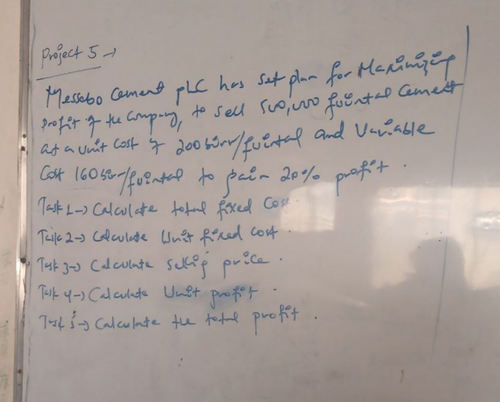 Project 5 →
Messebo Cement PLC has set plan for Maximizing
profit of the company, to sell 500,000 quintal Cement
at a unit cost of 200 birr/quintal and Variable
Cost 160 birr/quintal to gain 20% profit.
Task 1 → Calculate total fixed cost
Task 2 → Calculate Unit fixed cost.
Task 3 → Calculate selling price.
Task 4 → Calculate Unit profit.
Task 5 → Calculate the total profit.